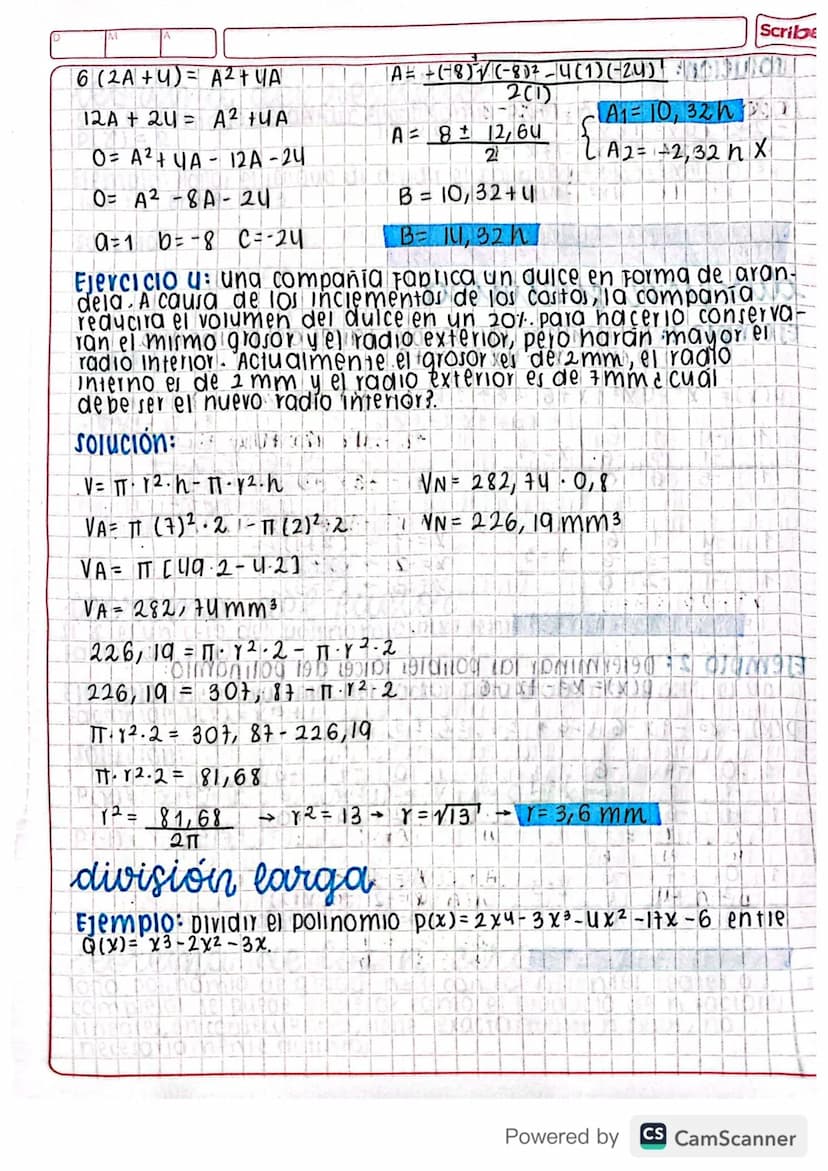 Scribe
D M A
6(2A+4) = A²+4A
12A + 24 = A² +4A
0= A²+4A - 12A -24
0= A² -8A - 24
a=1 b=-8 c=-24
A= +(-8)±√(-8)² -4(1)(-24)
2(1)
A = 8 ± 12,64
2
A1= 10,32h
A2= -2,32 h X
B = 10,32+4
B= 14,32h
Ejercicio 4: una compañía fabrica un dulce en forma de aran-
dela. A causa de los incrementos de los costos, la compañía
reducirá el volumen del dulce en un 20%. para hacerlo conserva-
ran el mismo grosor y el radio exterior, pero harán mayor el
radio interior. Actualmente el grosor es de 2mm, el radio
interno es de 2 mm y el radio exterior es de 7mm ¿cual
debe ser el nuevo radio interior?.
solución:
V= π·r²·h-π·r²·h
VA= π (7)²·2 - π(2)²·2
VA= π [49·2-4·2]
VA= 282,74mm³
VN= 282,74 · 0,8
VN= 226,19mm³
226,19 = π·r²·2 - π·r²·2
226,19 = 307,87 -π·r²·2
π·r²·2 = 307,87-226,19
π·r²·2 = 81,68
r² = 81,68 → r²= 13 → r=√13 → r= 3,6 mm
2π
división larga
Ejemplo: Dividir el polinomio p(x)=2x4-3x³-4x²-17x-6 entre
Q(x)= x³-2x²-3x.
Powered by CS CamScanner